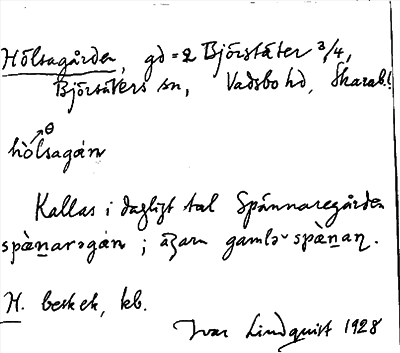 Hölsagården, gd = 2 Björsäter 3/4,
Björsäters sn, Vadsbo hd, Skarab.l.
hòlsagán
Kallas i dagligt tal Spännaregården
spànarəgán ; ägarn gamlə spànaɳ.
H. besk ek, kb.
Ivar Lindquist 1928